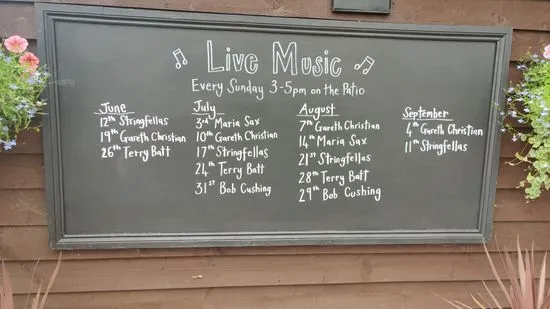 Live Music
Every Sunday 3-5pm on the Patio
June
12th Stringfellas
19th Gareth Christian
26th Terry Batt
July
3rd Maria Sax
10th Gareth Christian
17th Stringfellas
24th Terry Batt
31st Bob Cushing
August
7th Gareth Christian
14th Maria Sax
21st Stringfellas
28th Terry Batt
29th Bob Cushing
September
4th Gareth Christian
11th Stringfellas